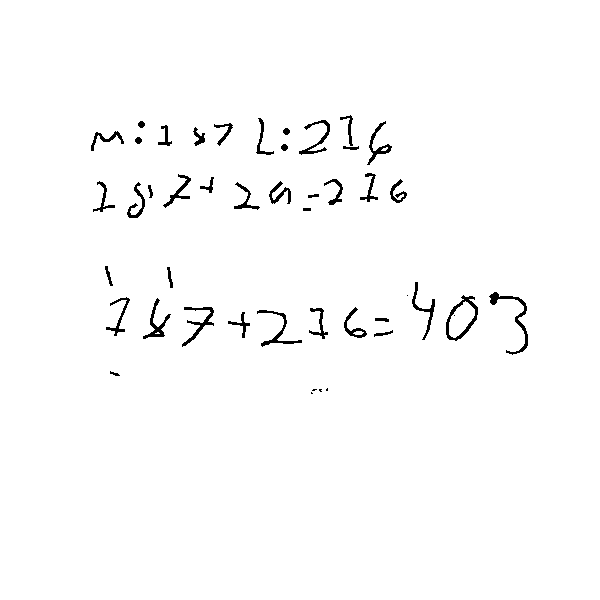 M:187 L:216
187+29=216
187+216=403